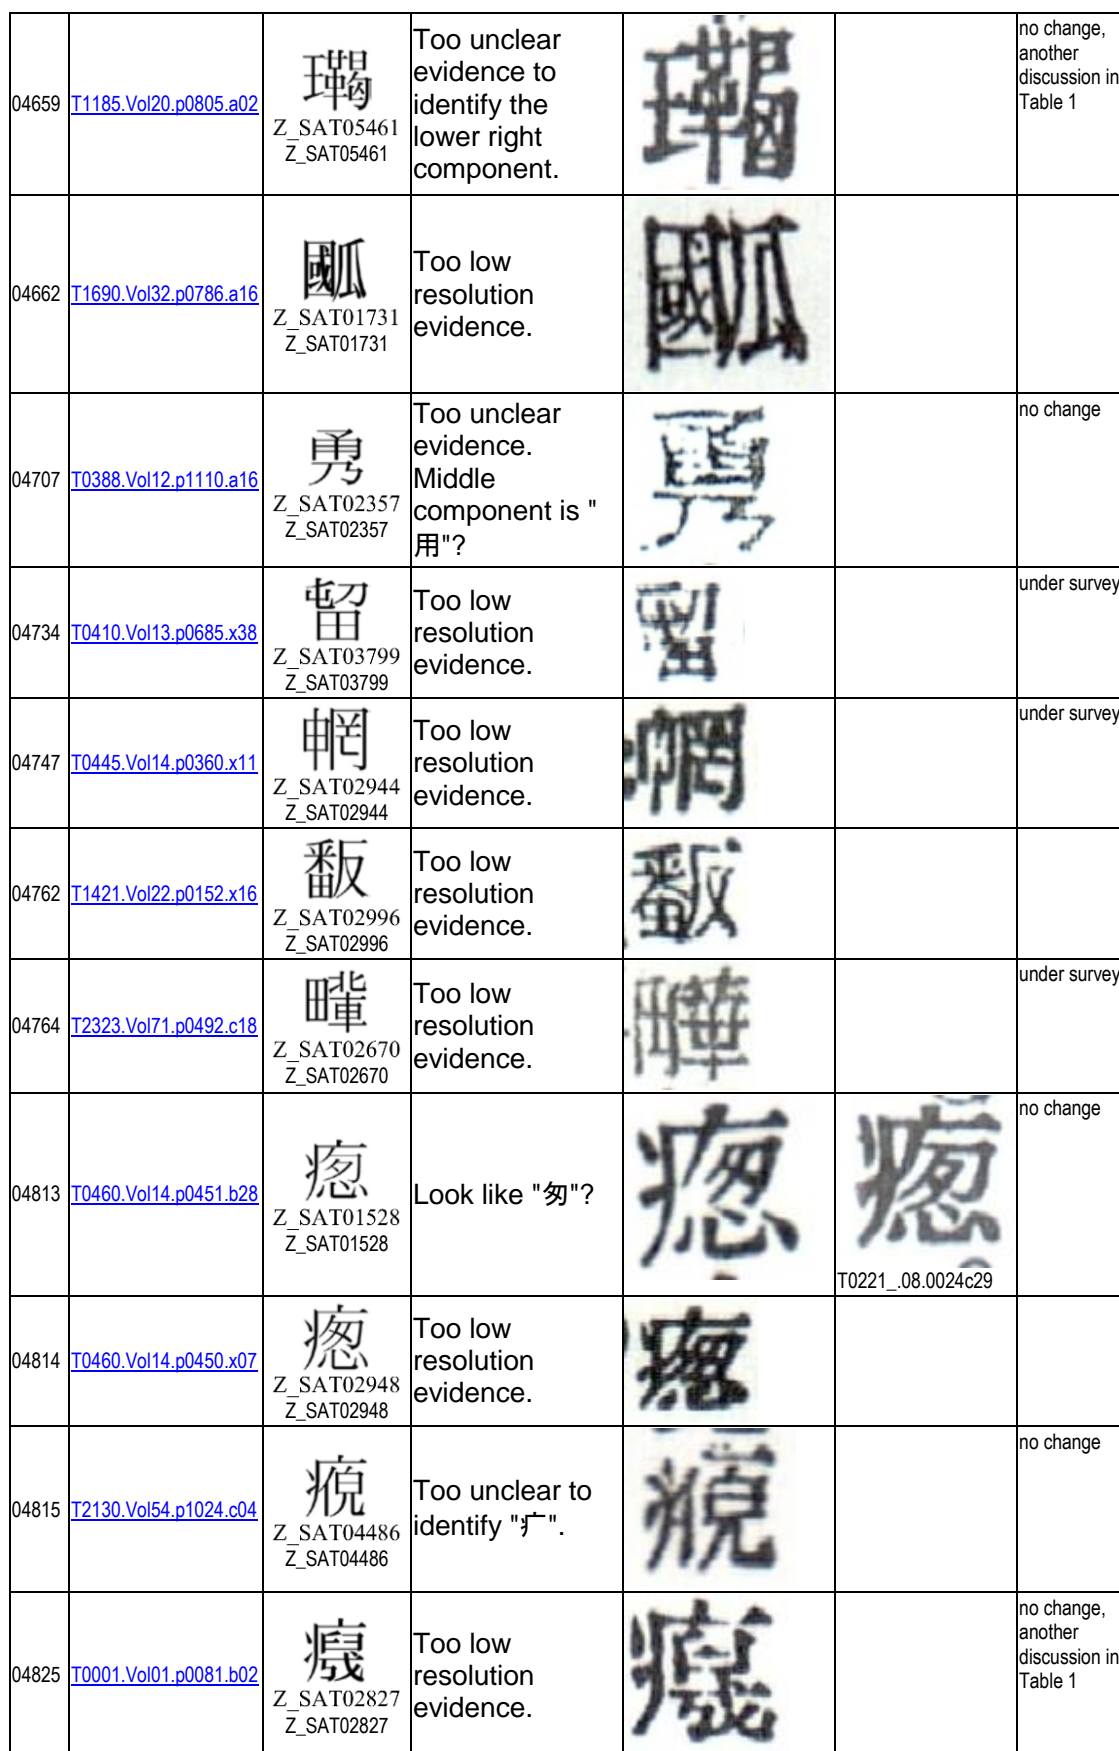 04659
T1185.Vol20.p0805.a02
Z_SAT05461
Z_SAT05461
Too unclear
evidence to
identify the
lower right
component.
no change,
another
discussion in
Table 1
04662
T1690.Vol32.p0786.a16
Z_SAT01731
Z_SAT01731
Too low
resolution
evidence.
04707
T0388.Vol12.p1110.a16
Z_SAT02357
Z_SAT02357
Too unclear
evidence.
Middle
component is "
用"?
no change
04734
T0410.Vol13.p0685.x38
Z_SAT03799
Z_SAT03799
Too low
resolution
evidence.
under survey
04747
T0445.Vol14.p0360.x11
Z_SAT02944
Z_SAT02944
Too low
resolution
evidence.
under survey
04762
T1421.Vol22.p0152.x16
Z_SAT02996
Z_SAT02996
Too low
resolution
evidence.
04764
T2323.Vol71.p0492.c18
Z_SAT02670
Z_SAT02670
Too low
resolution
evidence.
under survey
04813
T0460.Vol14.p0451.b28
Z_SAT01528
Z_SAT01528
Look like "匆"?
T0221_.08.0024c29
no change
04814
T0460.Vol14.p0450.x07
Z_SAT02948
Z_SAT02948
Too low
resolution
evidence.
04815
T2130.Vol54.p1024.c04
Z_SAT04486
Z_SAT04486
Too unclear to
identify "疒".
no change
04825
T0001.Vol01.p0081.b02
Z_SAT02827
Z_SAT02827
Too low
resolution
evidence.
no change,
another
discussion in
Table 1